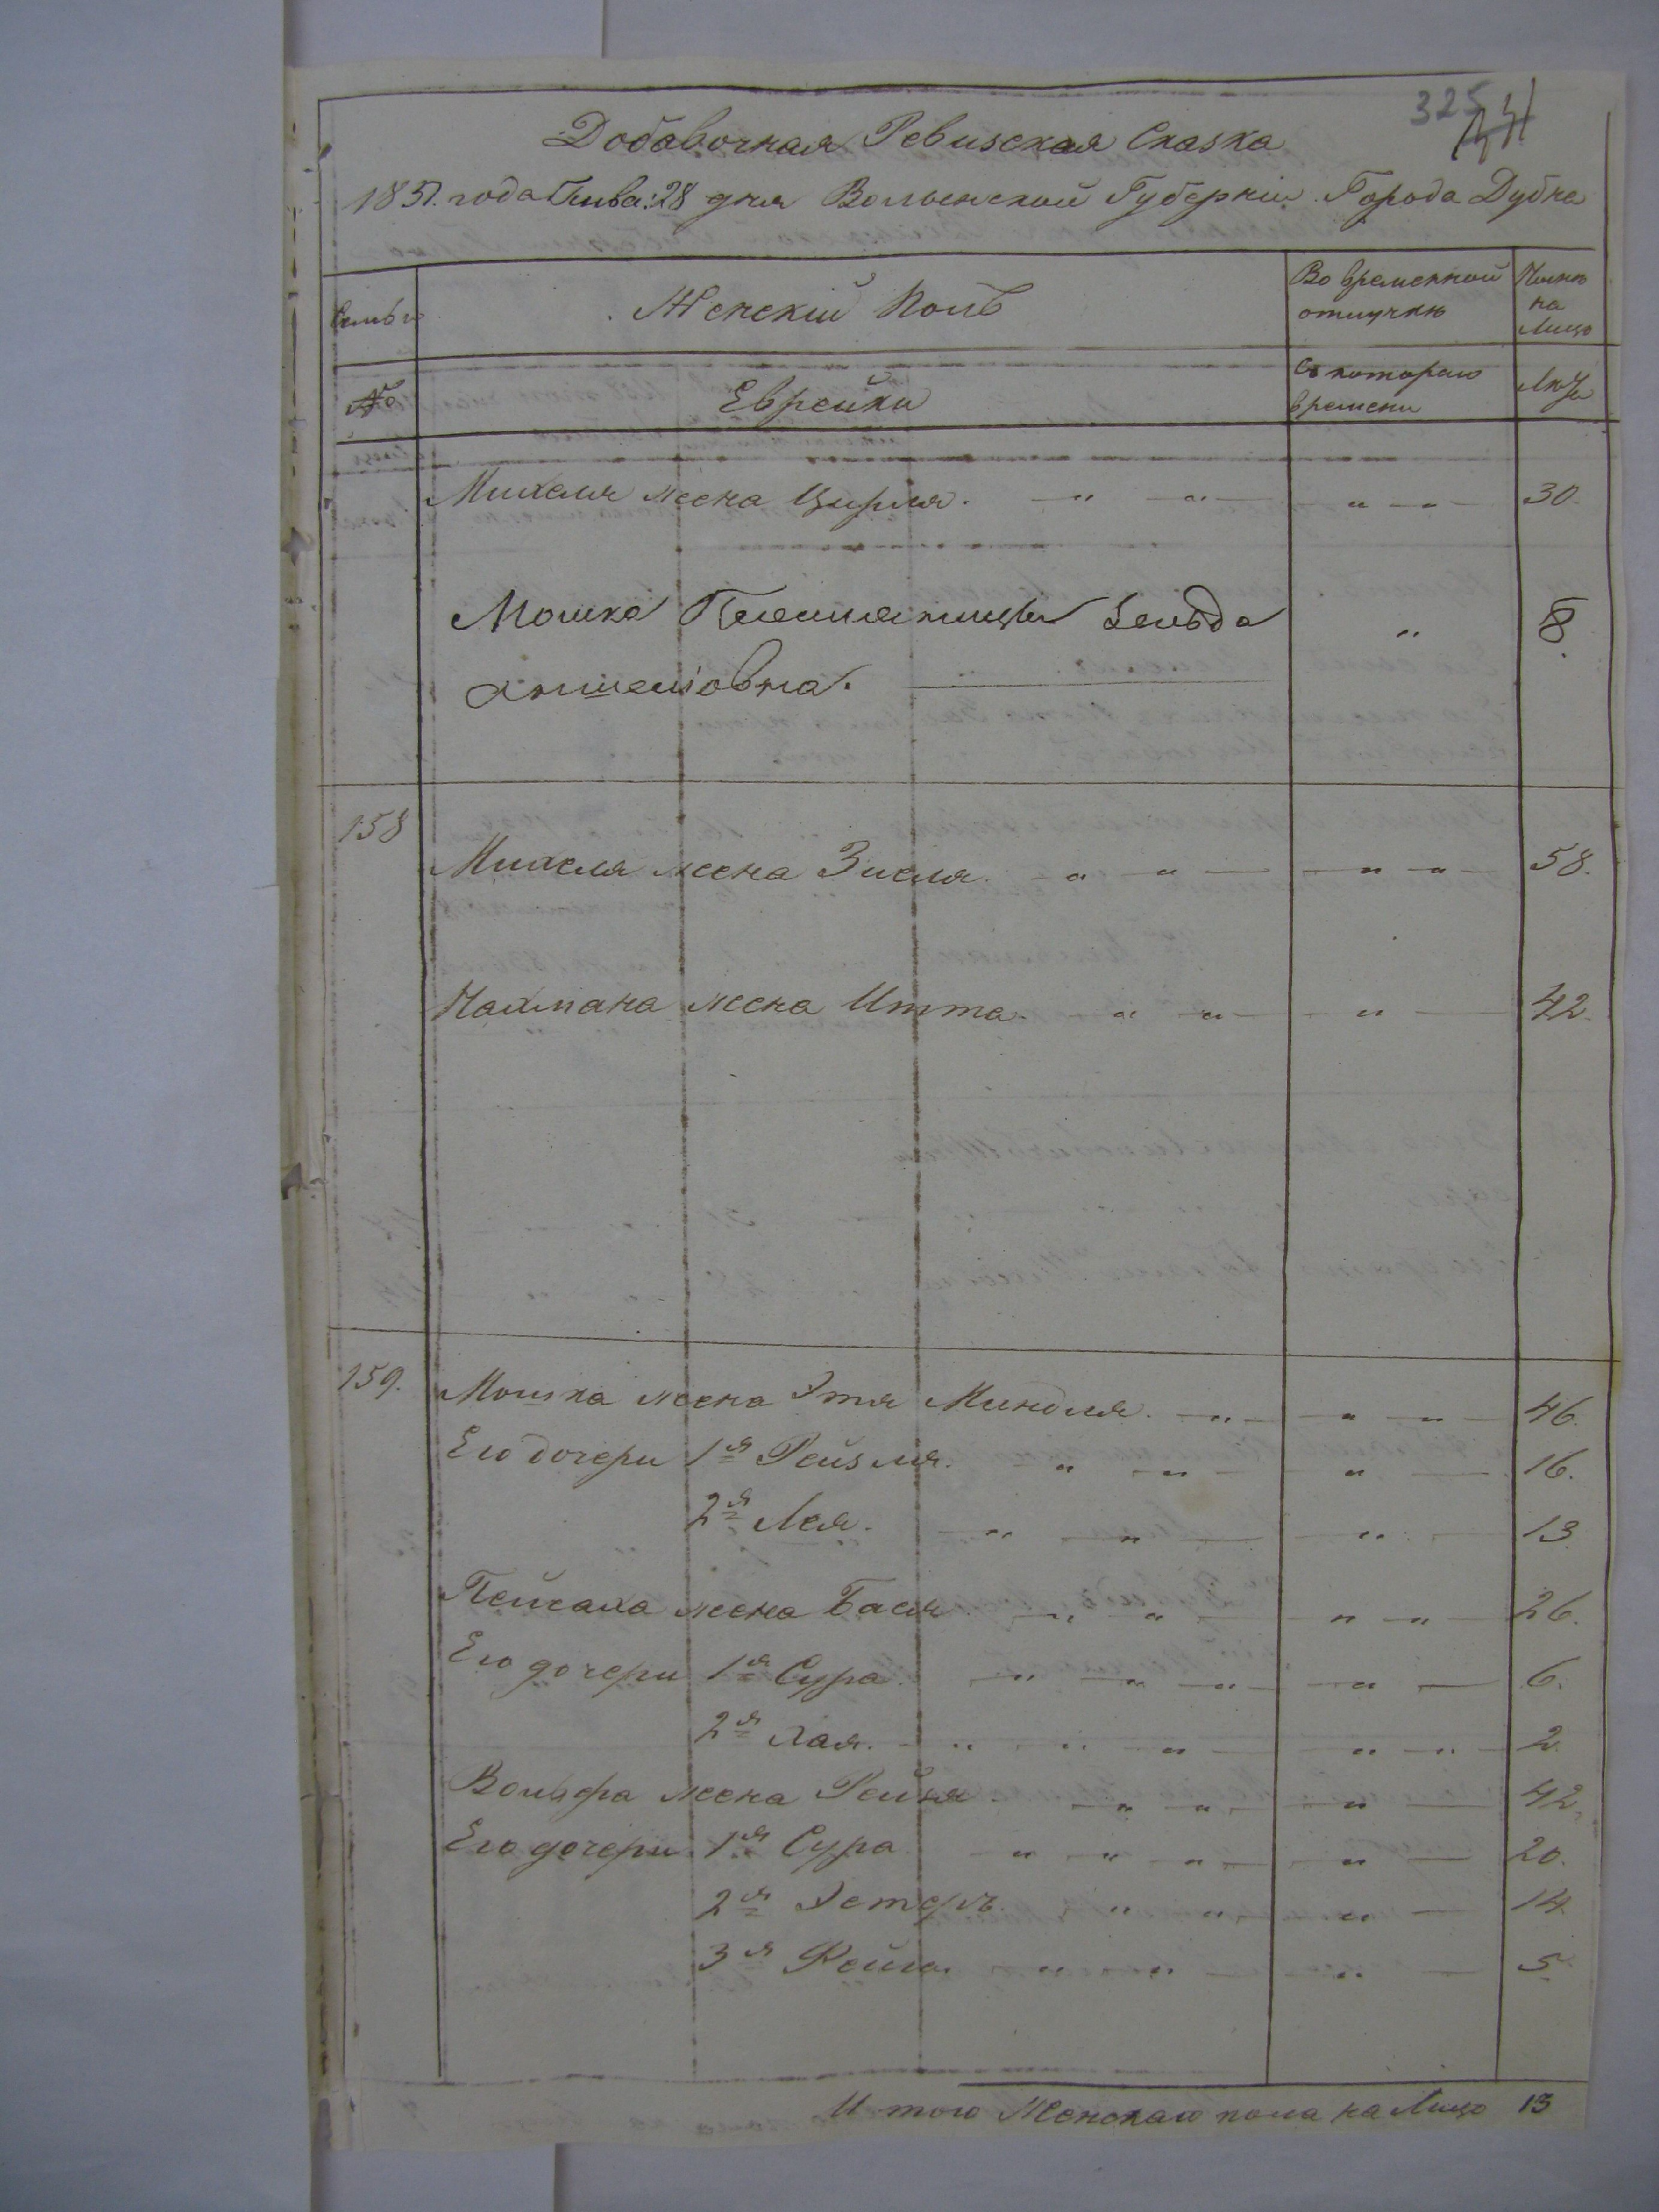 325
Добавочная Ревизская Сказка
1851. года дня Волынской Губерніи Города Дубна
Семьи
Женскій Полъ
Во временной отлучкѣ
Нынѣ на Лицо
№
Еврейки
Съ котораго времени
Лѣта
Михеля жена Цирля. 30.
Мошка Племянница Зельда 8.
Аншелiовна.
158
Михеля жена Зисля. 58.
Нахмана жена Итта. 42.
159. Мошка жена Этя Миндля. 46.
Его дочери 1я Рейзля. 16.
2я Лея. 13
Пейсаха жена Бася 26.
Его дочери 1я Сура. 6.
2я Хая. 2.
Вольфа жена Рейзя. 42.
Его дочери 1я Сура 20.
2я Эстеръ. 14.
3я Фейга. 5.
И того Женскаго пола на Лицо 13